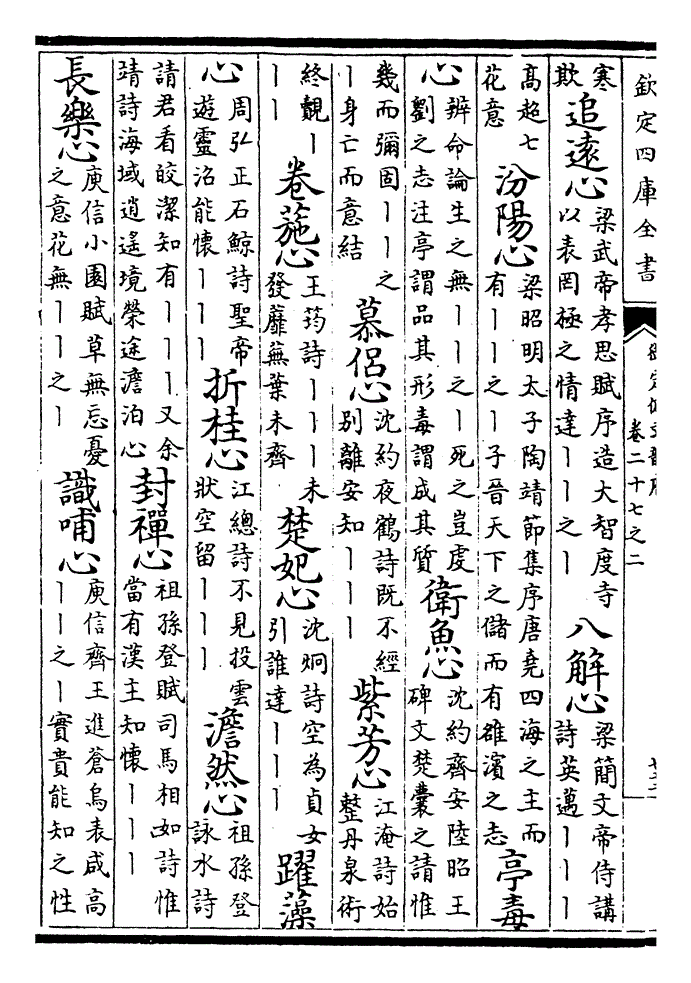 欽定四庫全書
卷二十七之二
寒
欺
追遠心
梁武帝孝思賦序造大智度寺
以表罔極之情達丨丨之丨
八解心
梁簡文帝侍講
詩英邁丨丨丨
高超七
花意
汾陽心
梁昭明太子陶靖節集序唐堯四海之主而
有丨丨之丨子晉天下之儲而有雒濱之志
亭毒
心
辨命論生之無丨丨之丨死之豈虔
劉之志注亭謂品其形毒謂成其質
衛魚心
沈約齊安陸昭王
碑文楚囊之請惟
幾而彌固丨丨之
丨身亡而意結
慕侶心
沈約夜鶴詩既不經
別離安知丨丨丨
紫芳心
江淹詩始
整丹泉術
終覿丨
丨丨
卷葹心
王筠詩丨丨丨未
發蘼蕪葉未齊
楚妃心
沈炯詩空為貞女
引誰達丨丨丨
躍藻
心
周弘正石鯨詩聖帝
遊靈沼能懷丨丨丨
折桂心
江總詩不見投雲
狀空留丨丨丨
澹然心
祖孫登
詠水詩
請君看皎潔知有丨丨丨又余
靖詩海域逍遙境榮途澹泊心
封禪心
祖孫登賦司馬相如詩惟
當有漢主知懷丨丨丨
長樂心
庾信小園賦草無忘憂
之意花無丨丨之丨
識哺心
庾信齊王進蒼烏表咸高
丨丨之丨實貴能知之性